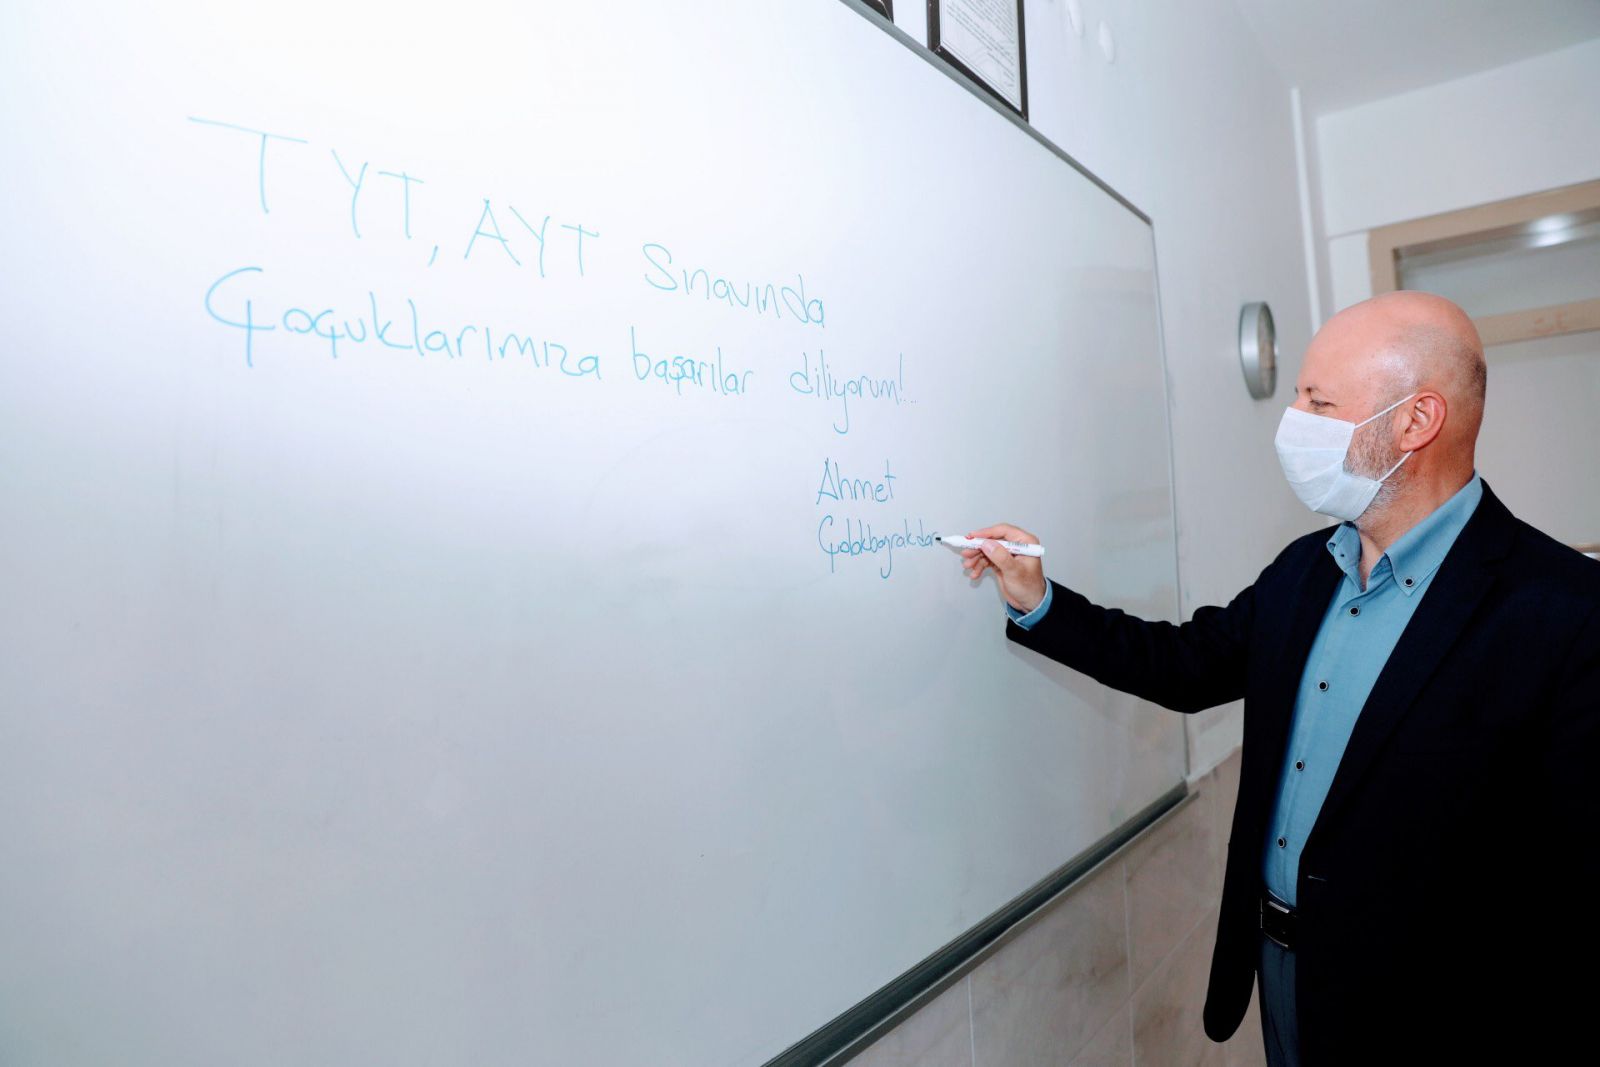 TYT, AYT Sınavında
Çoçuklarımıza başarılar diliyorum!..
Ahmet
Çolakbayrakdar